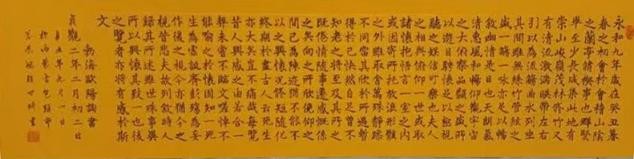 永和九年歲在癸丑暮
春之初會於會稽山陰
之蘭亭脩稧事也群賢
畢至少長咸集此地有
崇山峻嶺茂林脩竹又
有清流激湍映帶左右
引以為流觴曲水列坐
其次雖無絲竹管弦之
盛一觴一詠亦足以暢
敘幽情是日也天朗氣
清惠風和暢仰觀宇宙
之大俯察品類之盛所
以遊目騁懷足以極視
聽之娛信可樂也夫人
之相與俯仰一世或取
諸懷抱悟言一室之內
或因寄所託放浪形骸
之外雖取舍萬殊靜躁
不同當其欣於所遇暫
得於己怏然自足不
知老之將至及其所之
既惓情隨事遷感慨係
之矣向之所欣俛仰之
間已為陳迹猶不能不
以之興懷況脩短隨化
終期於盡古人云死生
亦大矣豈不痛哉每覽
昔人興感之由若合一
契未嘗不臨文嗟悼不
能喻之於懷固知一死
生為虛誕齊彭殤為妄
作後之視今亦猶今之
視昔悲夫故列敘時人
錄其所述雖世殊事異
所以興懷其致一也後
之覽者亦將有感於斯
文
渤海歐陽詢書
貞觀二年二月初二日